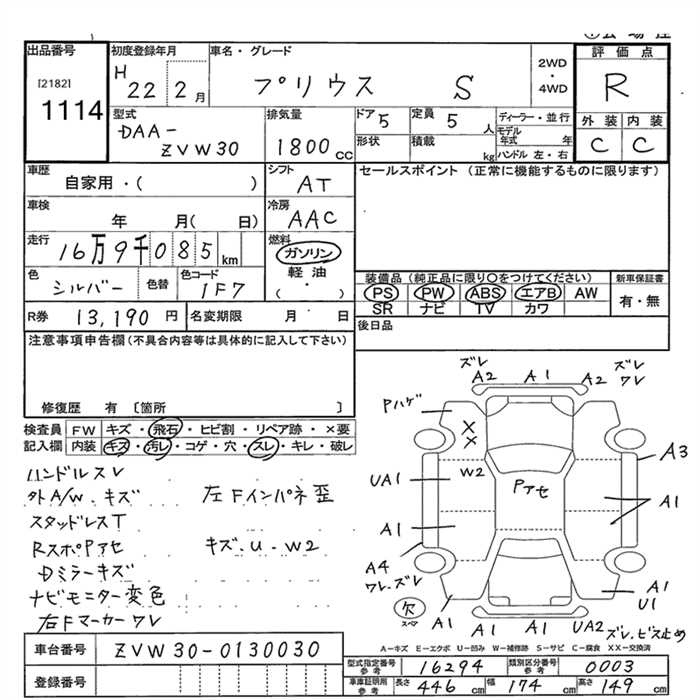 出品番号
[2182]
1114
初度登録年月
H 22 2月
車名・グレード
プリウス S
2WD
・
4WD
評価点
R
外装 内装
C C
型式
DAA-
ZVW30
排気量
1800cc
ドア 5
定員 5 人
形状
積載 kg
ディーラー・並行
モデル年式 年
ハンドル 左・右
車歴
自家用・( )
シフト
AT
セールスポイント (正常に機能するものに限ります)
車検
年 月( 日)
冷房
AAC
走行
16万9千085km
燃料
ガソリン
軽油
・
( )
色
シルバー
色替
色コード
1F7
装備品 (純正品に限り○をつけてください)
PS PW ABS エアB AW
SR ナビ TV カワ
新車保証書
有・無
R券 13,190円
名変期限 月 日
後日品
注意事項申告欄(不具合内容等は具体的に記入して下さい)
修復歴 有 [箇所 ]
検査員 FW キズ・飛石・ヒビ割・リペア跡・×要
記入欄 内装 キズ・汚レ・コゲ・穴・スレ・キレ・破レ
ハンドルスレ
外A/W.キズ 左Fインパネ歪
スタッドレスT
RスポPアセ キズ.U.W2
Dミラーキズ
ナビモニター変色
右Fマーカーワレ
ズレ
A2
A1
A2
ズレ
ワレ
Pハゲ
×
×
W2
Pアセ
A3
UA1
A1
A1
A4
ワレ.ズレ
欠
スペア
A1
A1
A1
UA2
ズレ.ビス止め
A1
U1
A-キズ E-エクボ U-凹み W-補修跡 S-サビ C-腐食 XX-交換済
車台番号 ZVW30-0130030
登録番号
型式指定番号 参考 16294
類別区分番号 参考 0003
車庫証明用 参考 長さ 446cm 幅 174cm 高さ 149cm